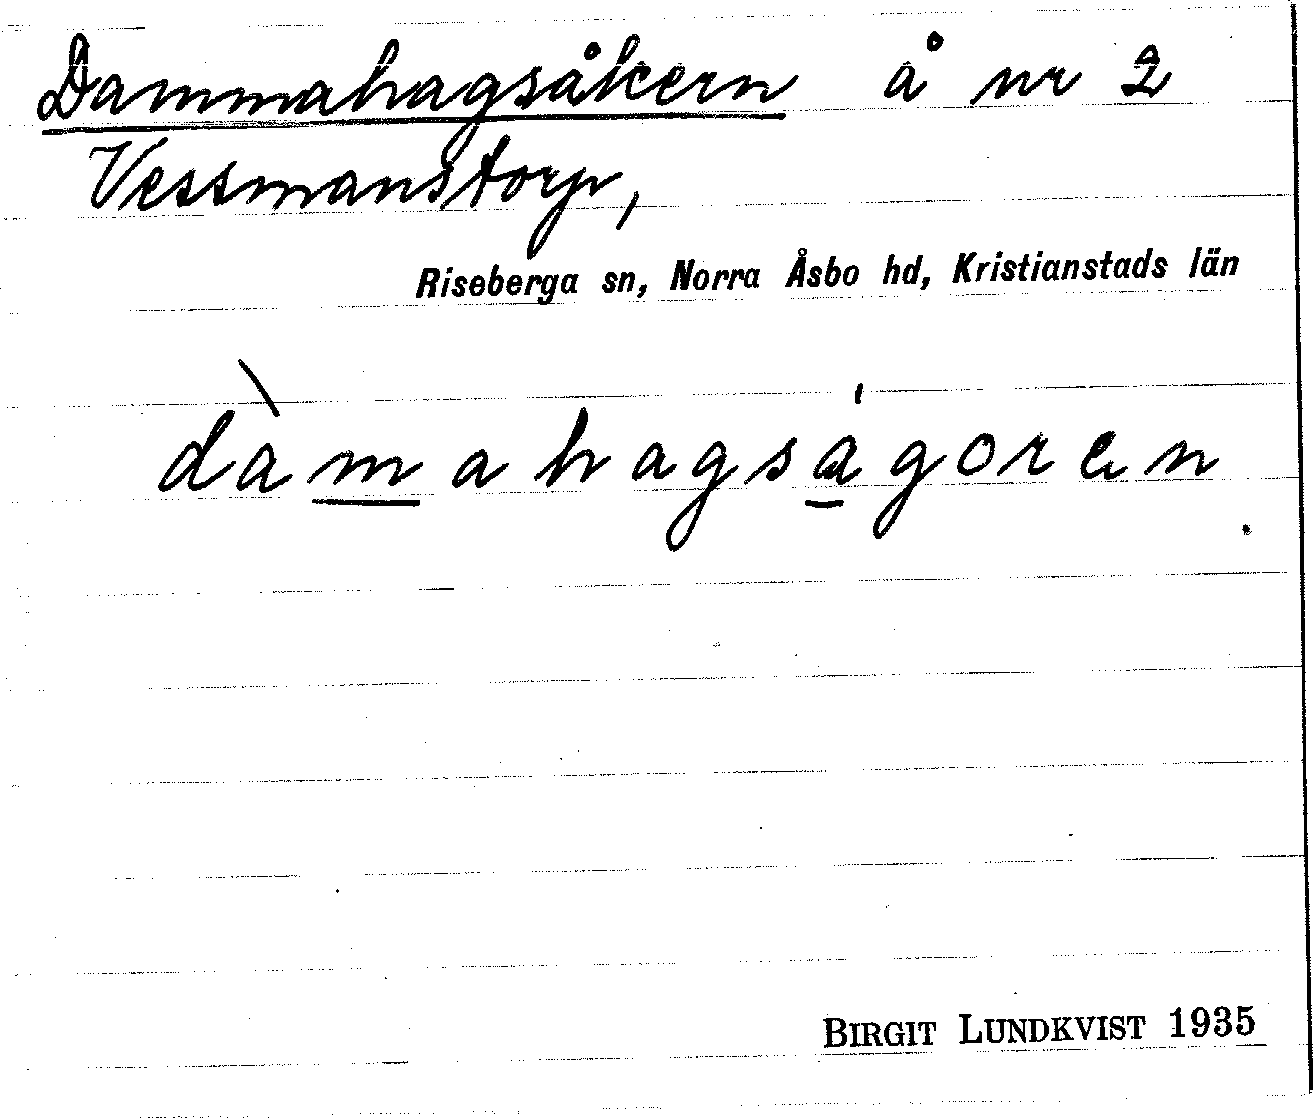 Dammahagsåkern å nr 2
Vessmanstorp,
Riseberga sn, Norra Åsbo hd, Kristianstads län
dàmahagságoren
BIRGIT LUNDKVIST 1935